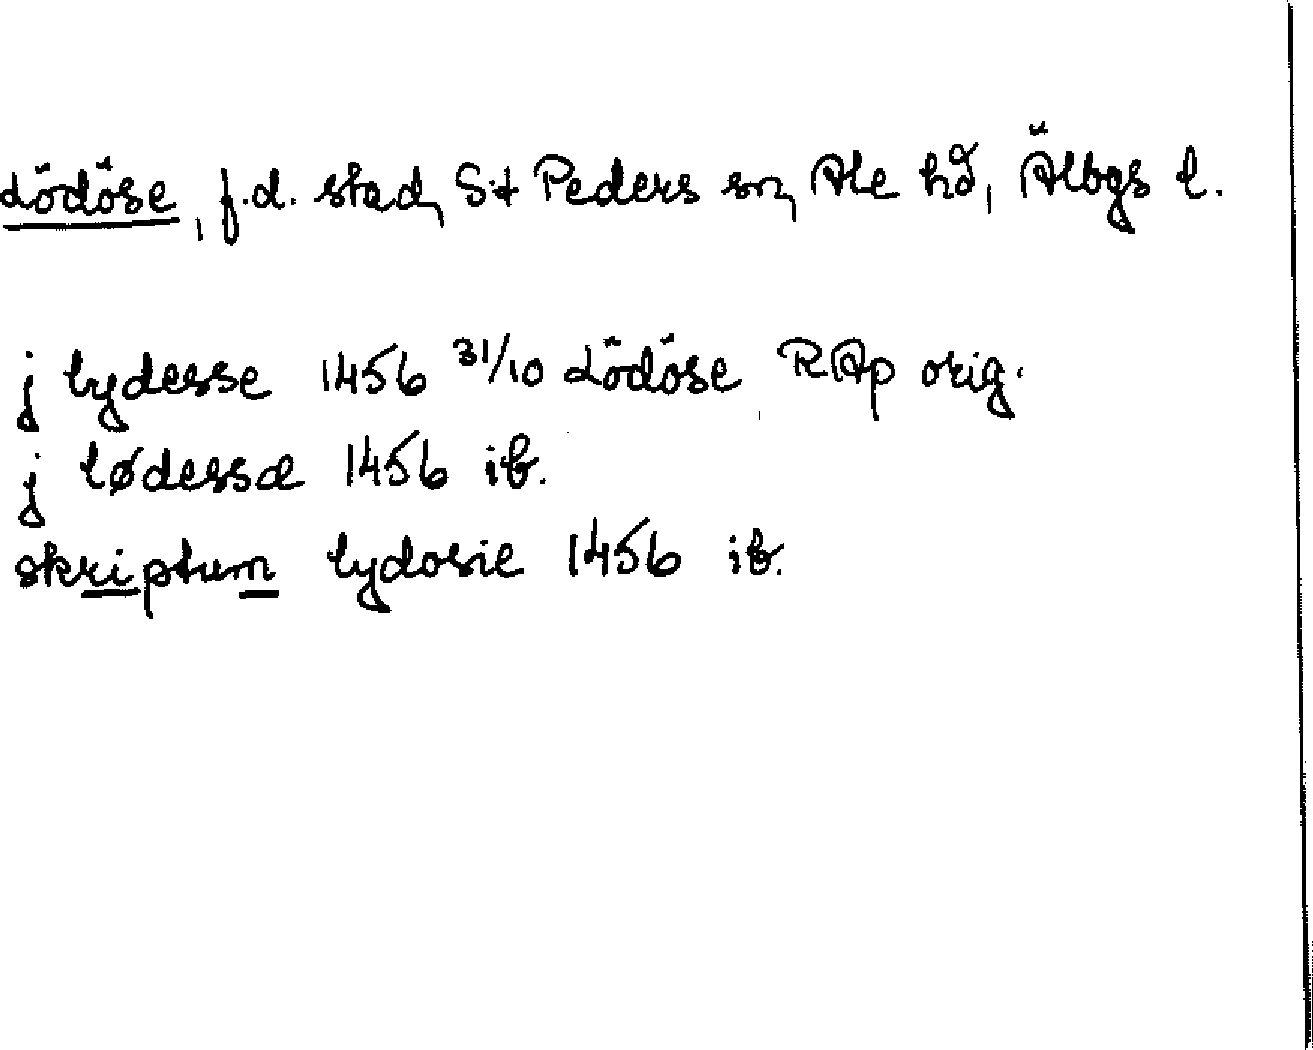 Lödöse, f.d. stad, S:t Peders sn, Ale hd, Älbgs l.
j lydesse 1456 31/10 Lödöse RAp orig.
j lødessæ 1456 ib.
skriptum lydosie 1456 ib.